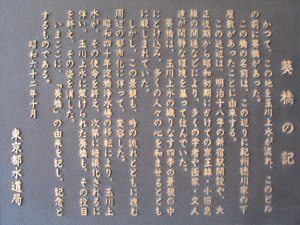 葵橋の記
かつて、この地を玉川上水が流れ、このビル
の前に葵橋があった。
この橋の名前は、この辺りに紀州徳川家の下
屋敷があったことに由来する。
この近辺は、明治十八年の新宿駅開設や、大
正後期から昭和初期にかけての京王線・小田急
線の開通などにより
葵橋は、玉川上水の織りなす四季の景観の中
にとけ込み、多くの人々の心を和ませるととも
に親しまれていた。
しかし、この景観も、時の流れとともに進む
周辺の都市化に伴って、変容した。
昭和四十年淀橋浄水場の移転により、玉川上
水が、その使命を終え、次第に暗渠化されるに
伴い、玉川上水に架けられた葵橋も、その役目
を終え、その姿を消した。
いまここに、「葵橋」の由来を記し、記念と
するものである。
昭和六十二年十月
東京都水道局